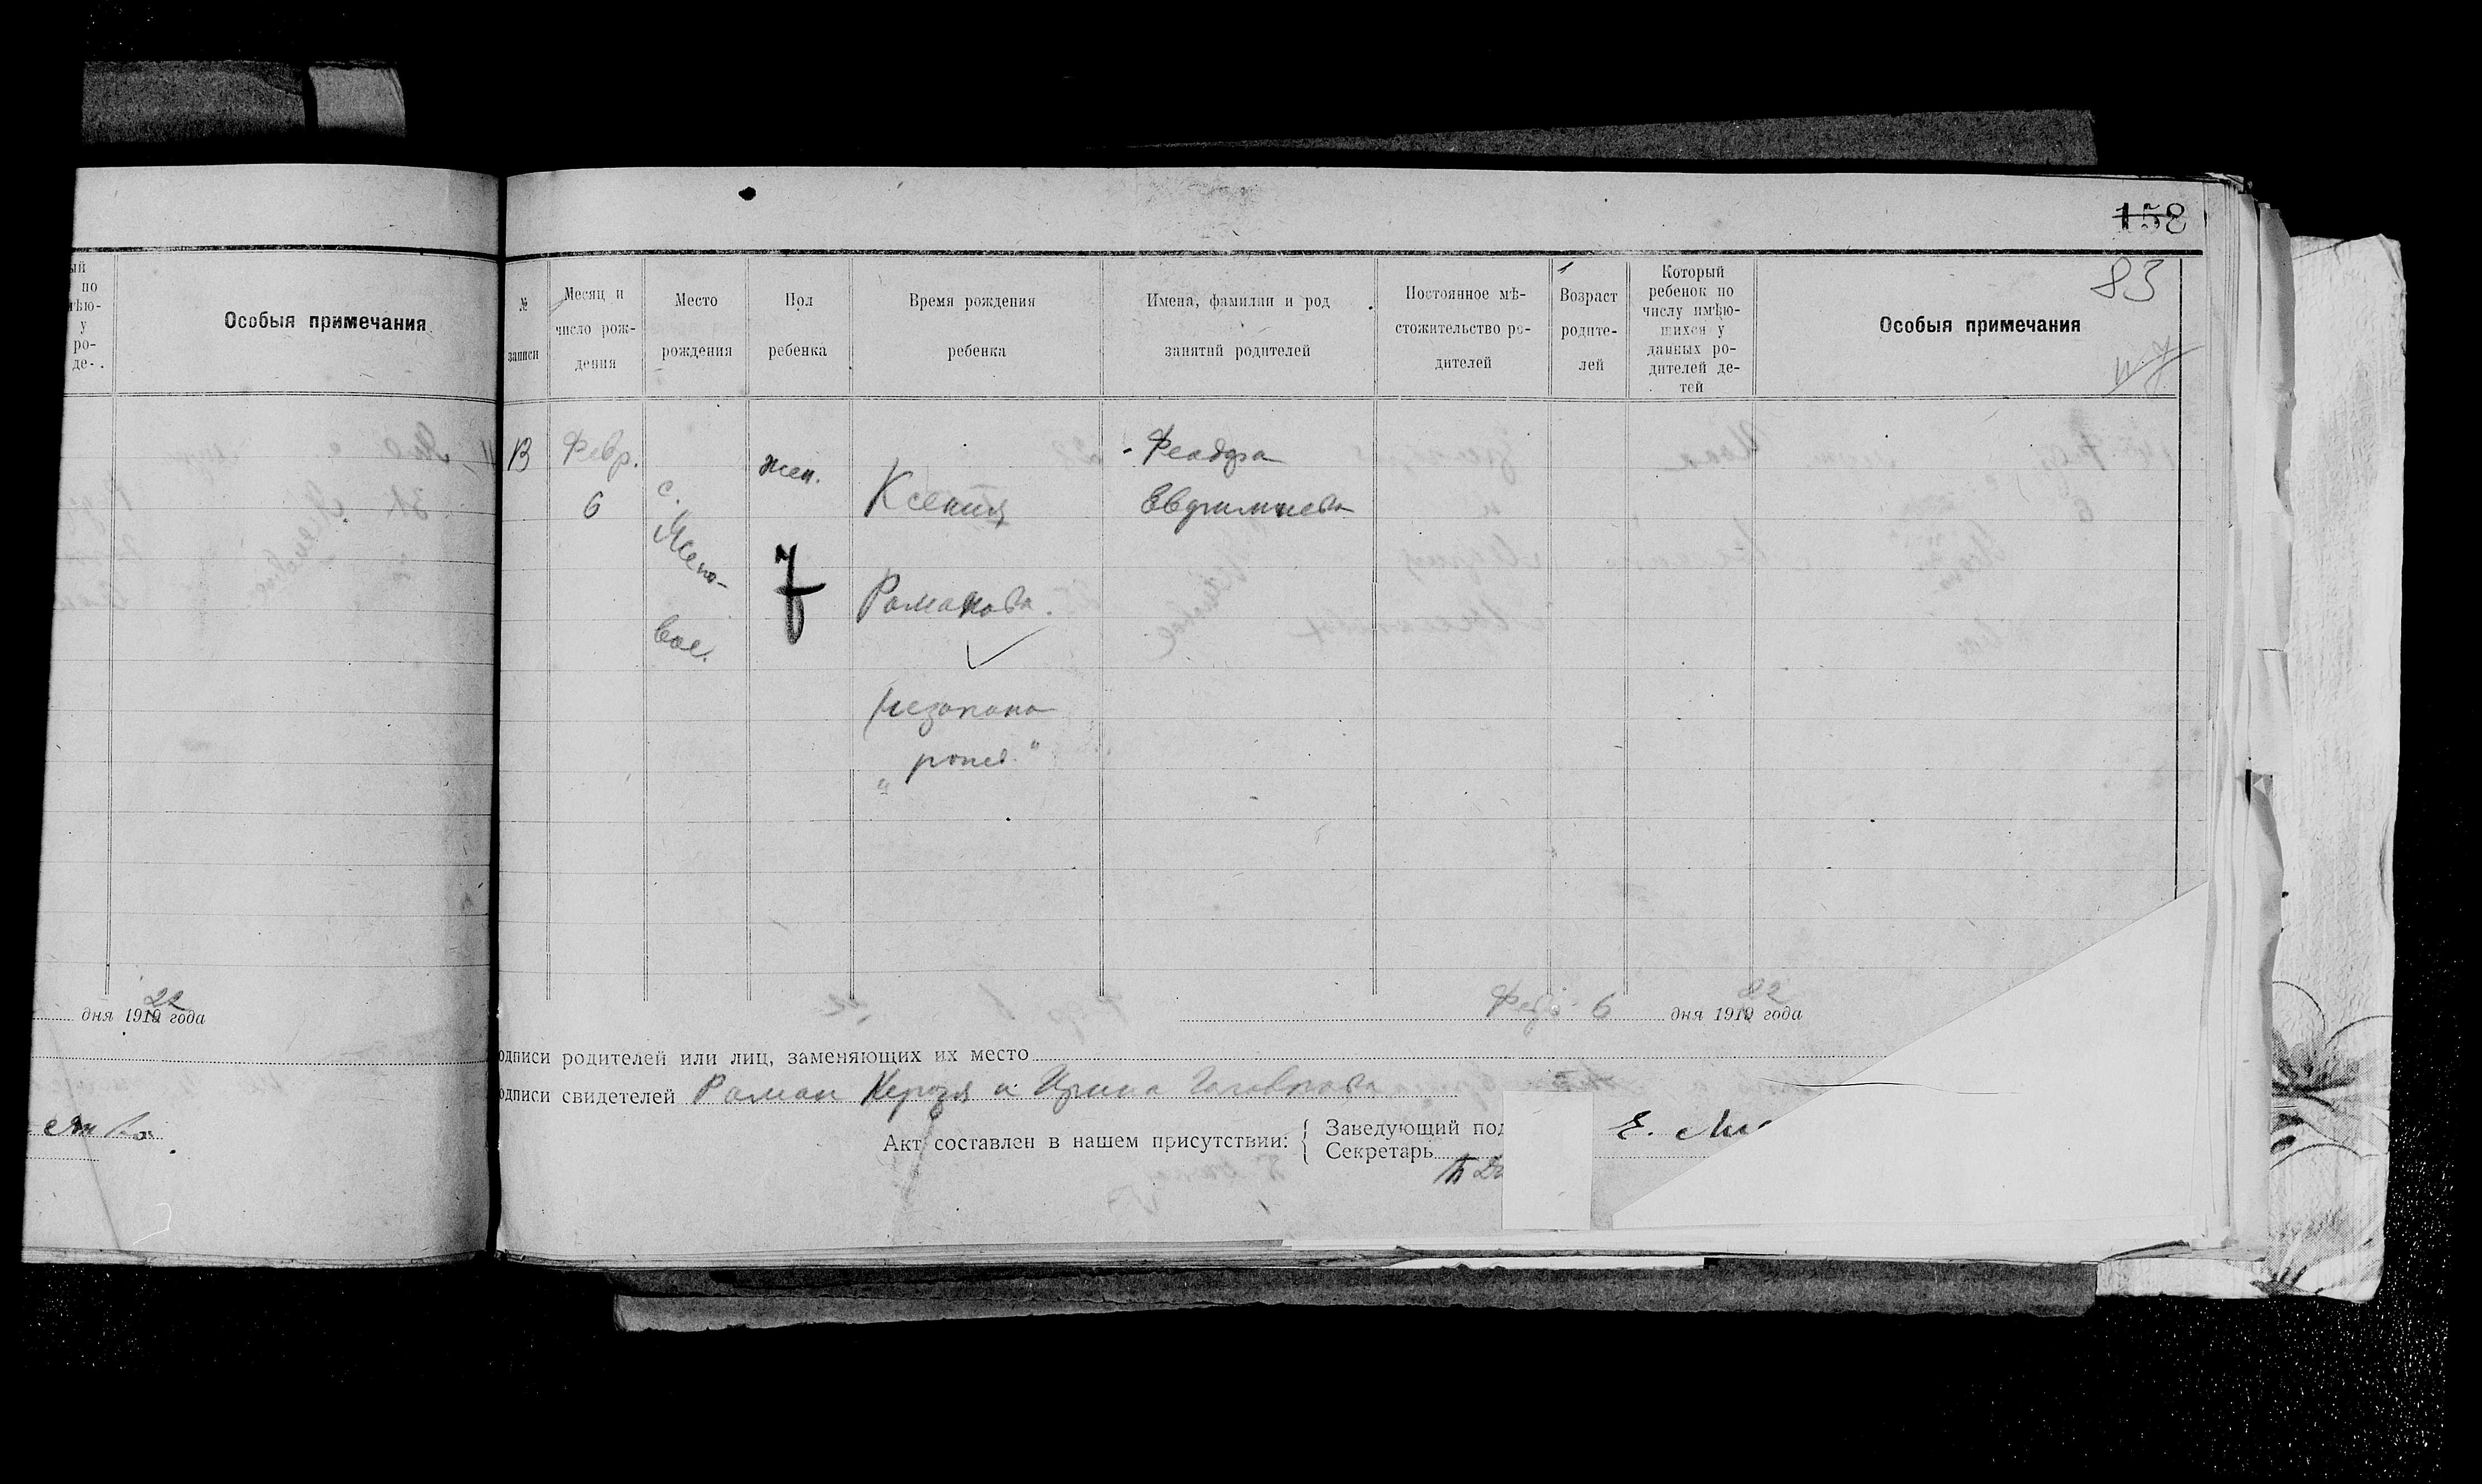 158
83
ый
по
мѣю-
у
ро-
де-
Особыя примечания
№
записи
Месяц и
число рож-
дения
Место
рождения
Пол
ребенка
Время рождения
ребенка
Имена, фамилии и род
занятий родителей
Постоянное мѣ-
стожительство ро-
дителей
Возраст
родите-
лей
Который
ребенок по
числу имѣю-
щихся у
данных ро-
дителей де-
тей
Особыя примечания
Февр.
6
с.
вое.
жен.
7
Ксения
Романова.
Феодора
дня 1922 года
Февр 6 дня 1922 года
одписи родителей или лиц, заменяющих их место
одписи свидетелей Роман и Ирина
Акт составлен в нашем присутствии:
Заведующий под
Е.
Секретарь